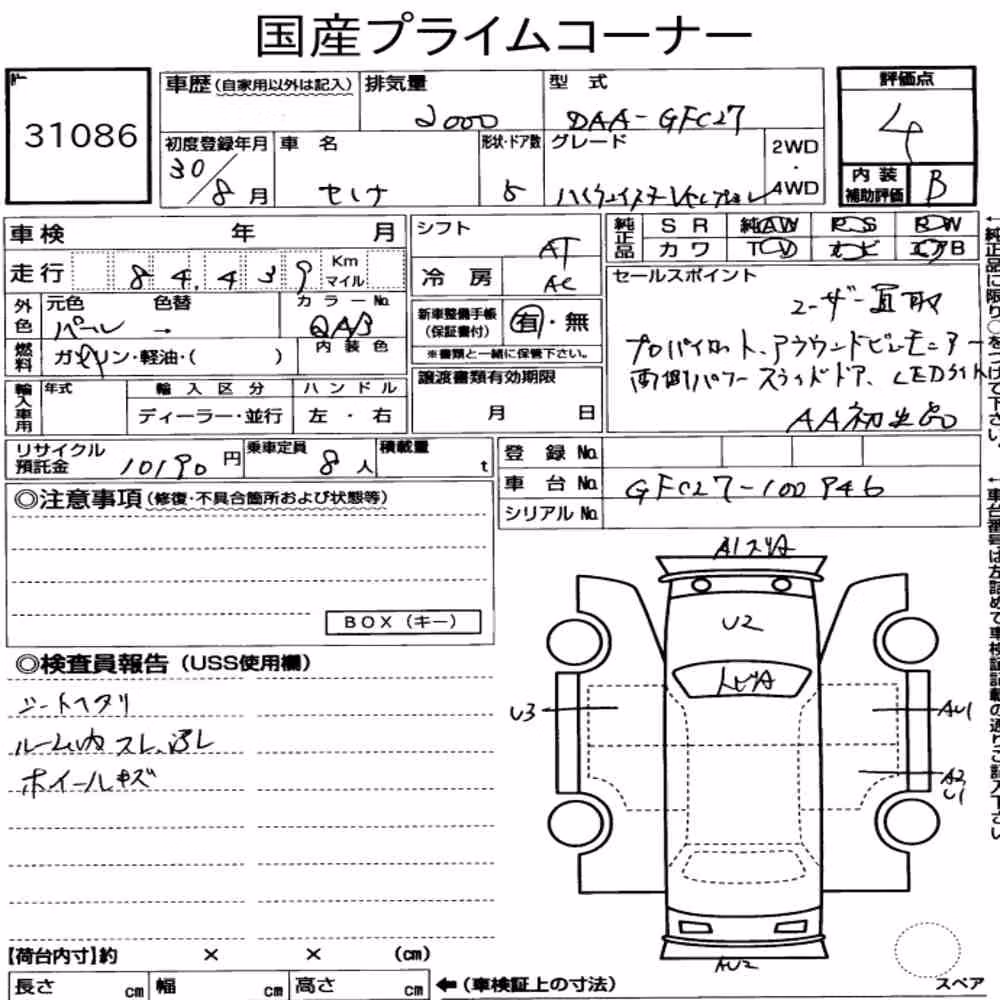 国産プライムコーナー
31086
車歴(自家用以外は記入)
排気量
2000
型式
DAA-GFC27
評価点
4
初度登録年月
30/8月
車名
セレナ
形状・ドア数
5
グレード
ハイウェイスターVセレクション
2WD
・
4WD
内装
補助評価
B
車検 年 月
走行 84,439 Km マイル
外色
元色 色替
パール →
カラーNo.
QAB
燃料
ガソリン・軽油・( )
内装色
輸入車用
年式
輸入区分
ディーラー・並行
ハンドル
左・右
シフト
AT
冷房
AC
新車整備手帳
(保証書付)
有・無
※書類と一緒に保管下さい。
譲渡書類有効期限
月 日
純正品
SR 純AW PS PW
カワ TV ナビ エアB
セールスポイント
ユーザー買取
プロパイロット、アラウンドビューモニター
両側パワースライドドア、LEDライト
AA初出品
リサイクル
預託金
10190円
乗車定員
8人
積載量
t
登録No.
車台No.
GFC27-100946
シリアルNo.
◎注意事項(修復・不具合箇所および状態等)
BOX(キー)
◎検査員報告(USS使用欄)
シートヘタリ
ルーム内スレ、汚レ
ホイールキズ
A1スリA
U2
トビA
U3
AU1
A2
U1
AU2
スペア
【荷台内寸】約 × × (cm)
長さ cm 幅 cm 高さ cm
←(車検証上の寸法)
←純正品に限り○をつけて下さい。
←車台番号は左詰めで車検証記載の通りご記入下さい